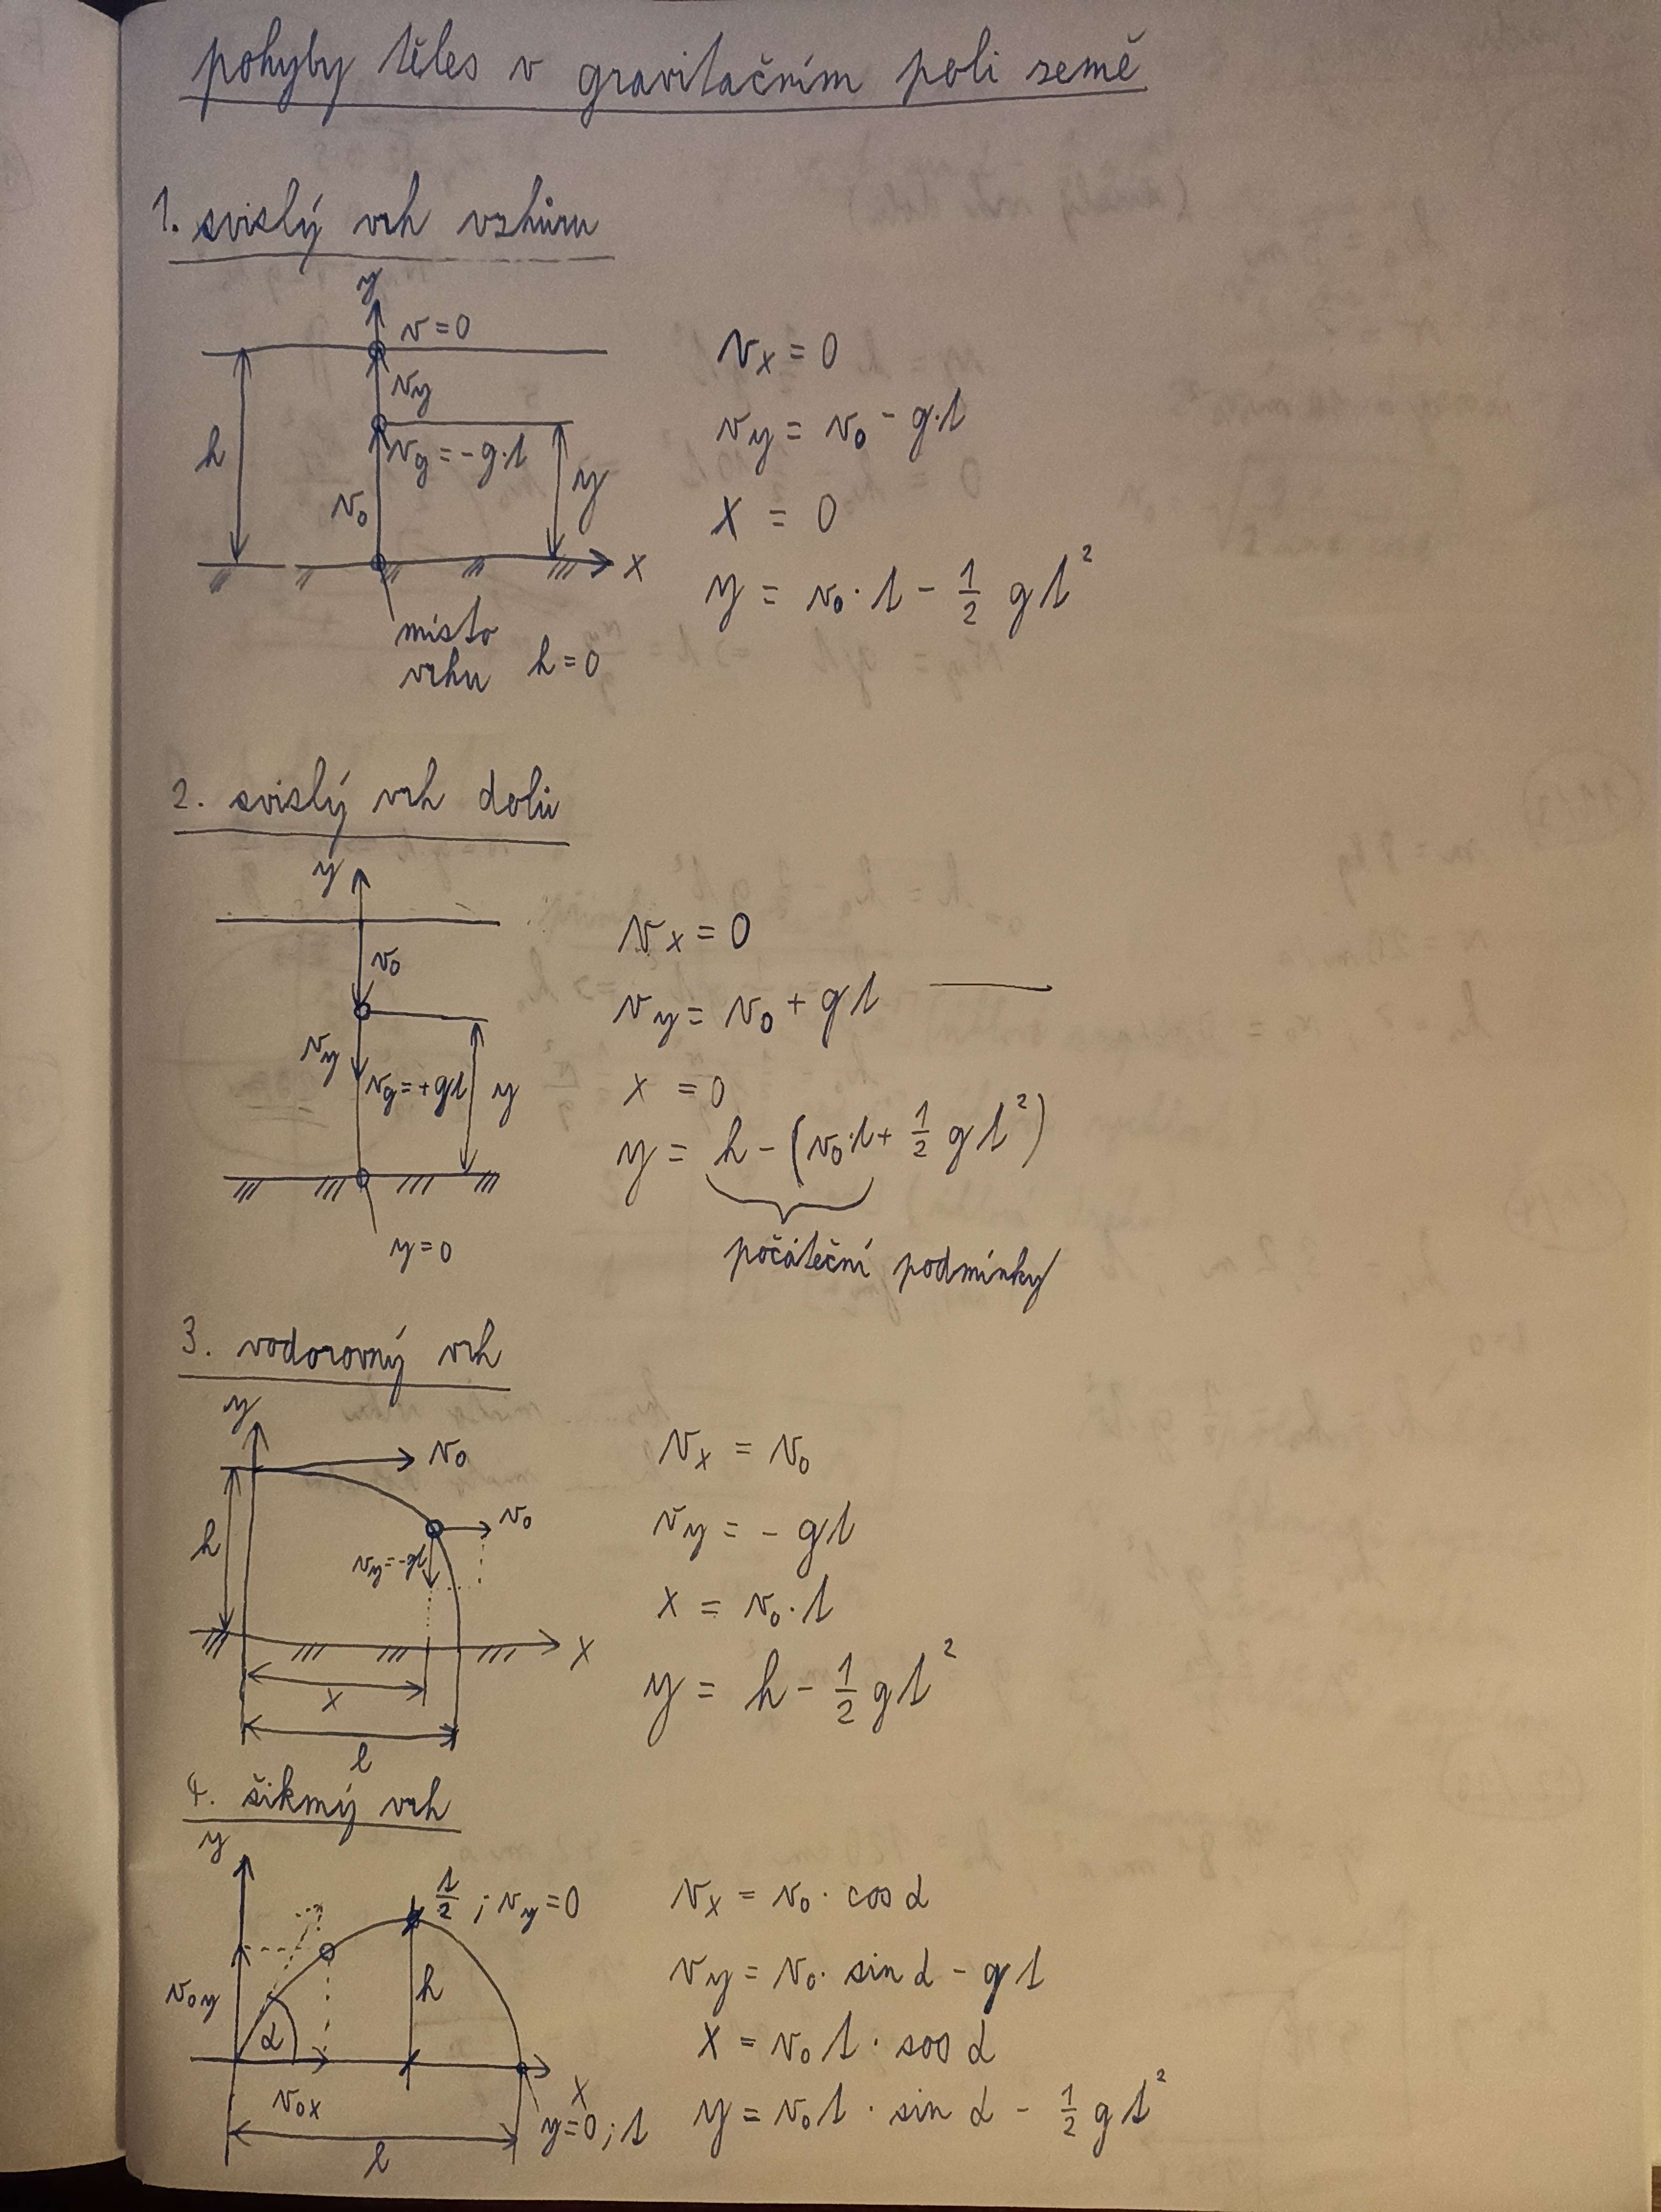 pohyby těles v gravitačním poli země
1. svislý vrh vzhůru
y
v=0
v_y
v_g = -g·t
h
y
v_0
x
místo
vrhu h=0
v_x = 0
v_y = v_0 - g·t
x = 0
y = v_0·t - 1/2 gt²
2. svislý vrh dolů
y
v_0
v_y
v_g = +gt
y
y=0
v_x = 0
v_y = v_0 + gt
x = 0
y = h - (v_0·t + 1/2 gt²)
počáteční podmínky
3. vodorovný vrh
y
v_0
v_0
h
v_y = -gt
x
x
l
v_x = v_0
v_y = - gt
x = v_0·t
y = h - 1/2 gt²
4. šikmý vrh
y
t/2 ; v_y=0
v_0y
h
α
v_0x
x
y=0 ; t
l
v_x = v_0 · cos α
v_y = v_0 · sin α - gt
x = v_0 t · sos α
y = v_0 t · sin α - 1/2 gt²